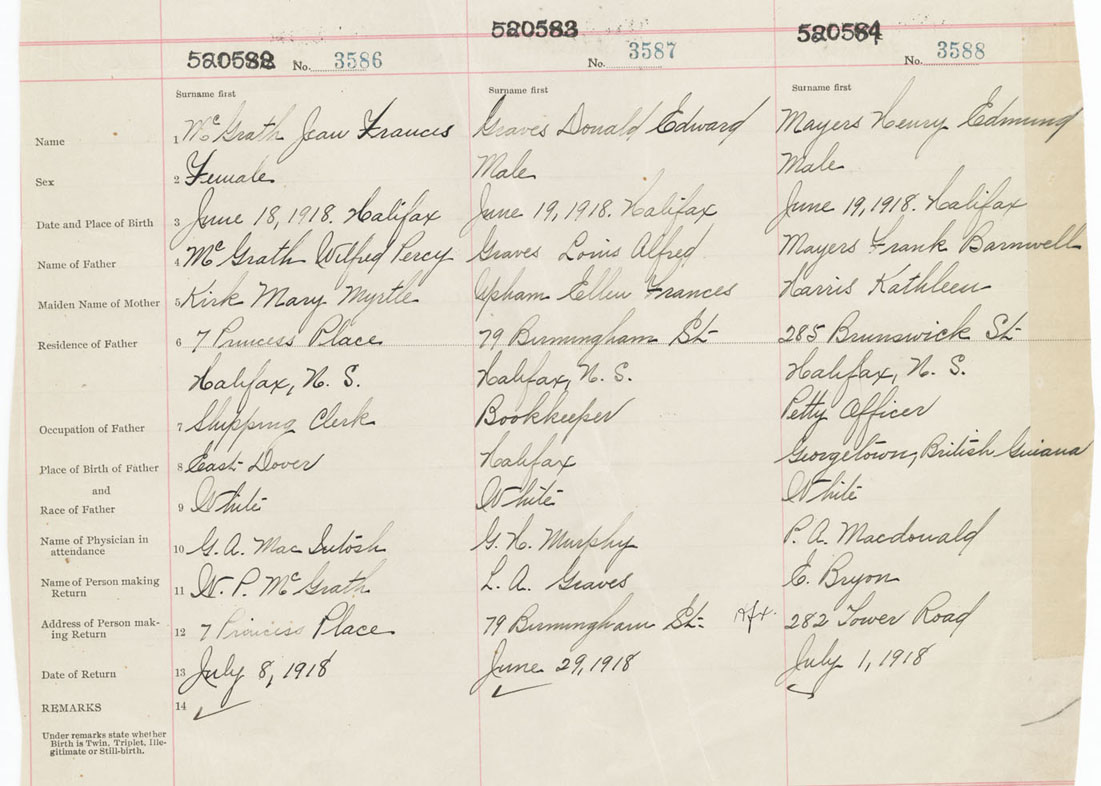 520582 No. 3586
520583 No. 3587
520584 No. 3588
Surname first Surname first Surname first
Name 1 Mc Grath Jean Frances Graves Donald Edward Mayers Henry Edmund
Sex 2 Female Male Male
Date and Place of Birth 3 June 18, 1918. Halifax June 19, 1918. Halifax June 19, 1918. Halifax
Name of Father 4 Mc Grath Wilfred Percy Graves Louis Alfred Mayers Frank Barnwell
Maiden Name of Mother 5 Kirk Mary Myrtle Upham Ellen Frances Harris Kathleen
Residence of Father 6 7 Princess Place 79 Birmingham St 285 Brunswick St
Halifax, N. S. Halifax, N. S. Halifax, N. S.
Occupation of Father 7 Shipping Clerk Bookkeeper Petty Officer
Place of Birth of Father 8 East Dover Halifax Georgetown, British Guiana
and
Race of Father 9 White White White
Name of Physician in
attendance 10 G. A. Mac Intosh G. H. Murphy P. A. Macdonald
Name of Person making
Return 11 W. P. Mc Grath L. A. Graves E. Bryon
Address of Person mak-
ing Return 12 7 Princess Place 79 Birmingham St. Hfx. 282 Tower Road
Date of Return 13 July 8, 1918 June 29, 1918 July 1, 1918
REMARKS 14
Under remarks state whether
Birth is Twin, Triplet, Ille-
gitimate or Still-birth.